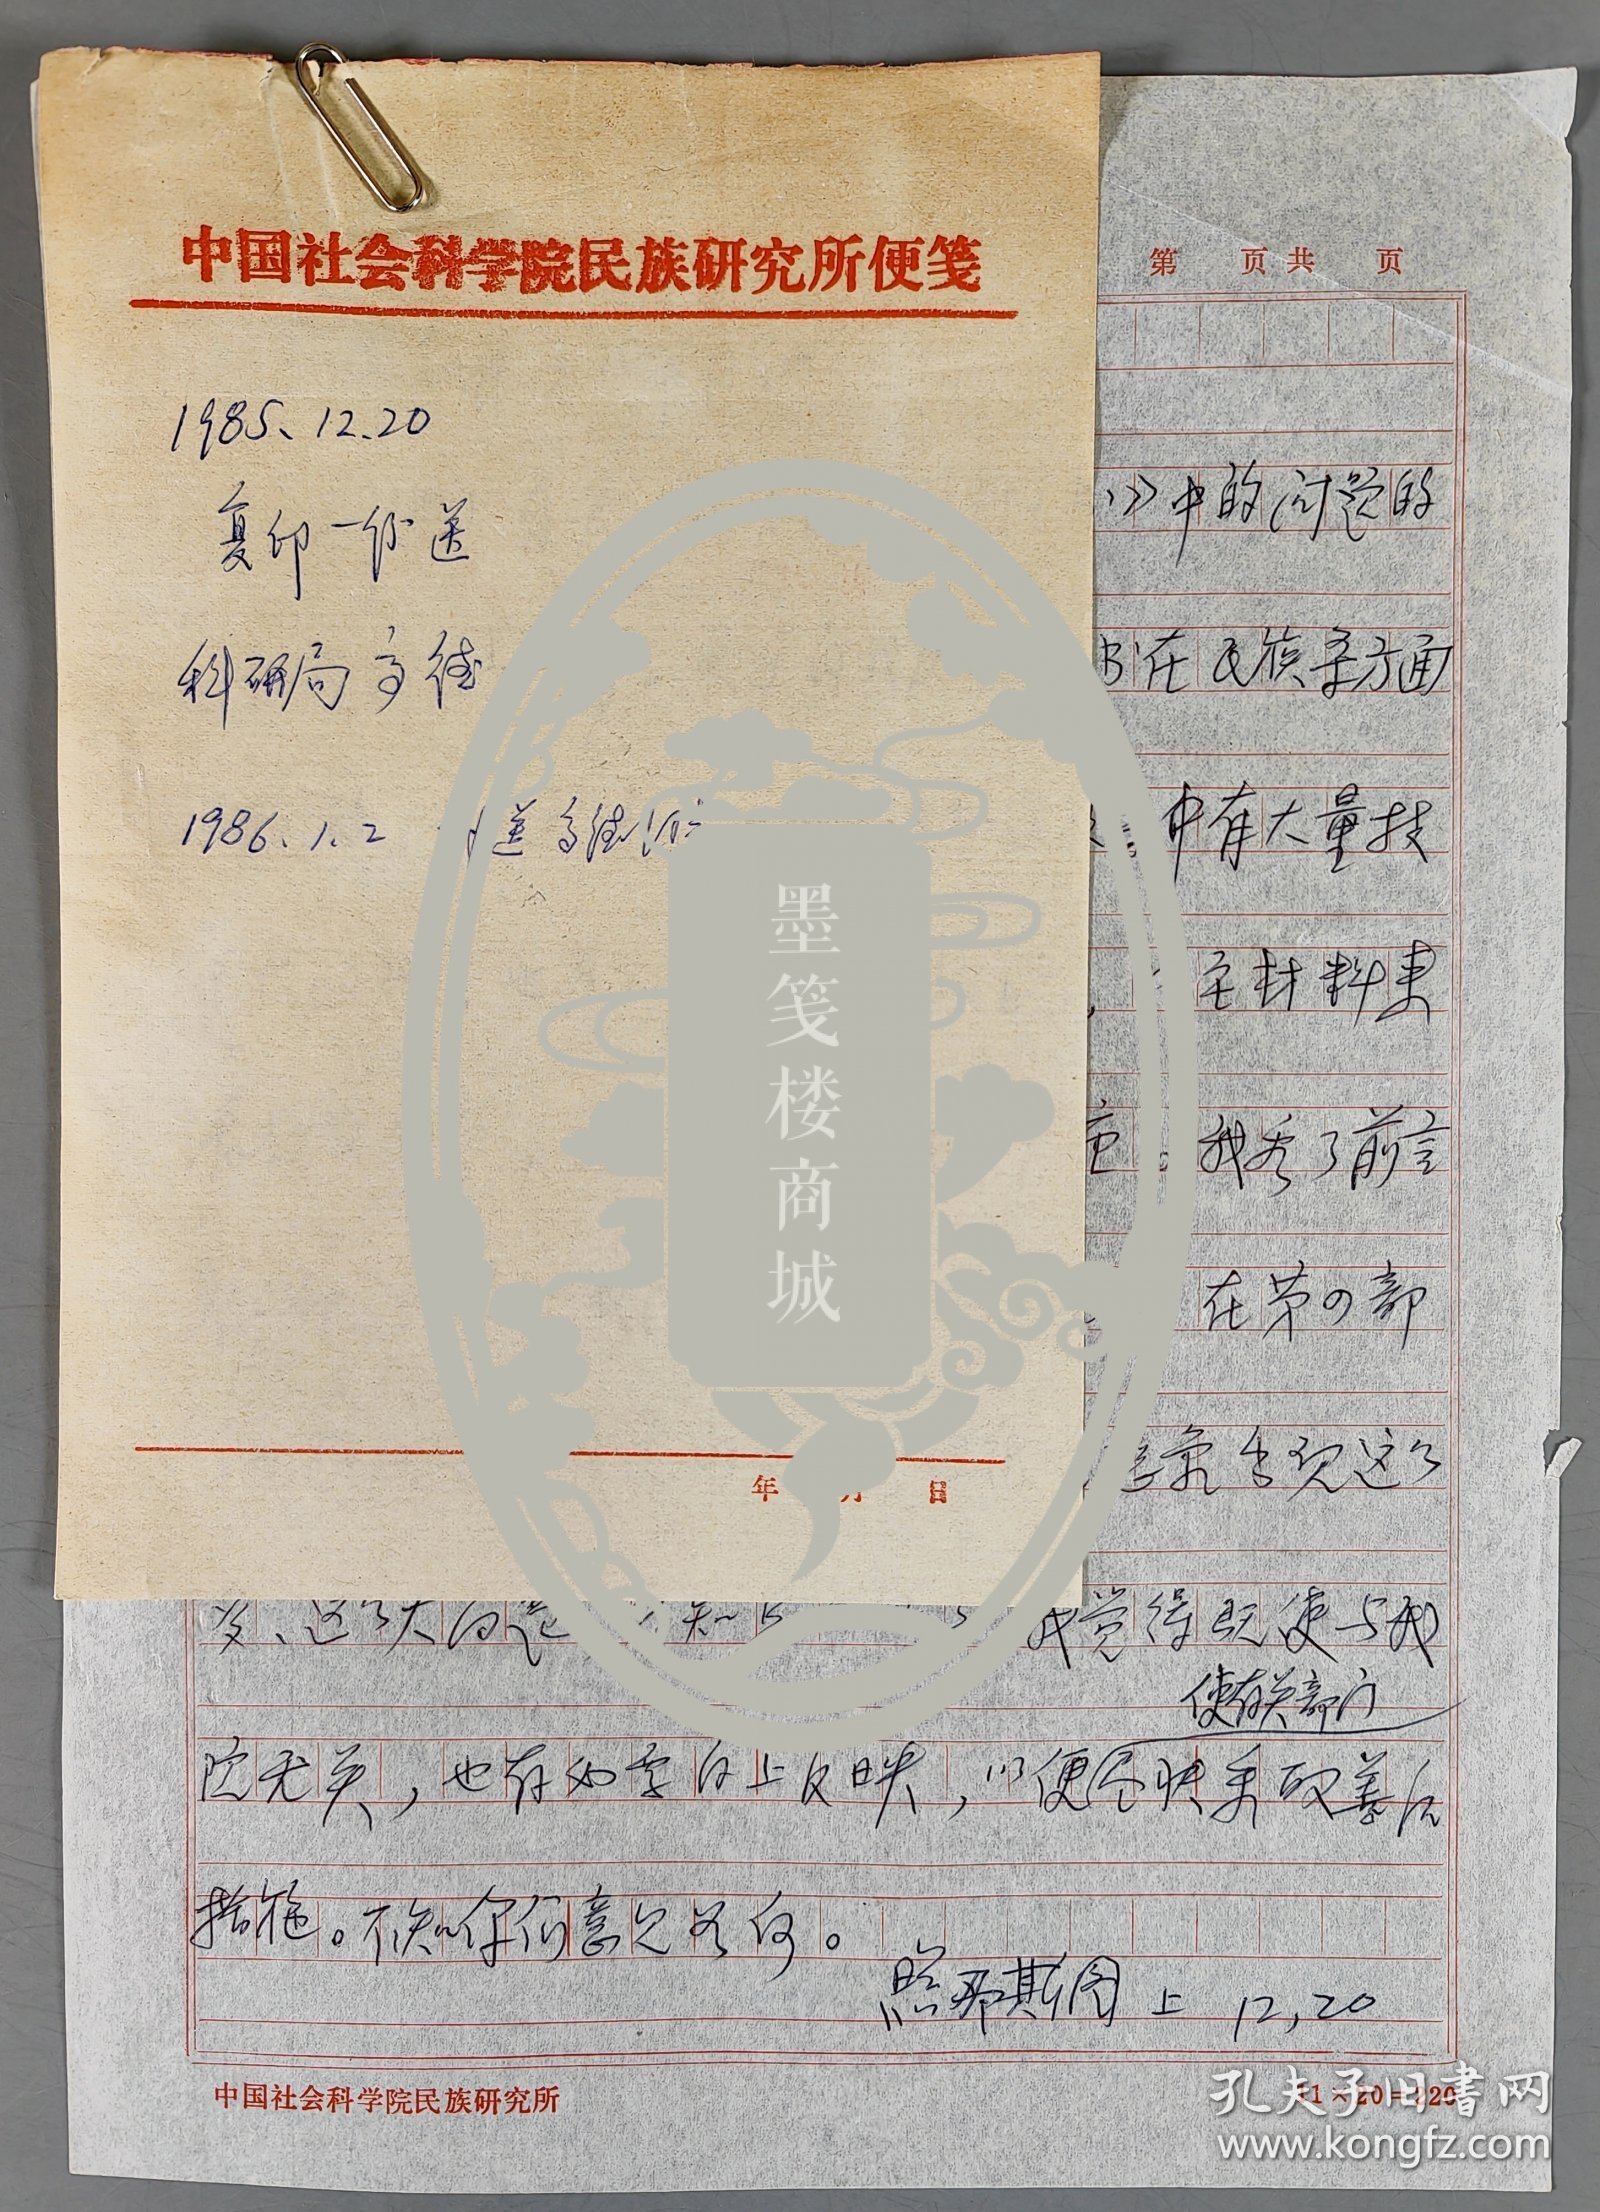 中国社会科学院民族研究所便笺
1985、12、20
复印一份送
科研局高德
1986.1.2 送高德
年 月 日
第 页共 页
中的问题的
在民族学方面
中有大量技
材料来
我看了前言
在第四部
出现这么
多、这么大的 我觉得既使与我
使有关部门
院无关，也有必要向上反映，以便尽快采取善后
措施。不知你们意见如何。
照那斯图 上 12,20
中国社会科学院民族研究所
11×20=220
墨笺楼商城
孔夫子旧书网
www.kongfz.com